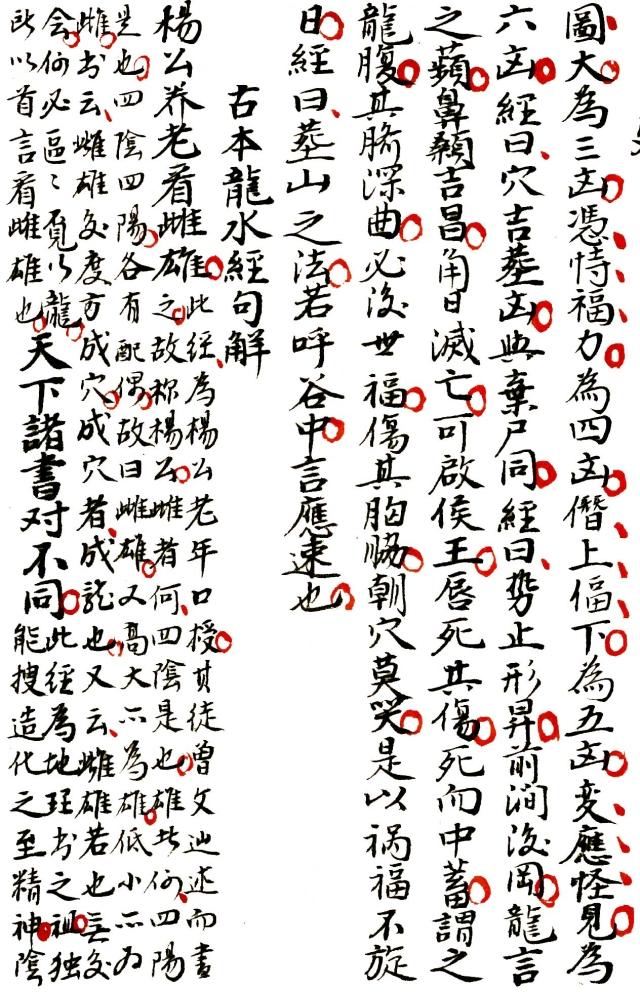 圖大為三凶憑恃福力為四凶僭上偪下為五凶変應怪見為
六凶經曰穴吉塟凶與棄尸同經曰势止形昇前澗後岡龍言
之蘋鼻顙吉昌角目滅亡可啟侯王唇死其傷死而中蓄謂之
龍腹其臍深曲必後世福傷其胸脇朝穴莫哭是以禍福不旋
日經曰塟山之法若呼谷中言應速也
古本龍水經句解
楊公养老看雌雄
此經為楊公老年口授其徒曾文辿述而書
之故称楊公雌者何四陰是也雄者何四陽
是也四陰四陽各有配偶故曰雌雄又高大亦為雄低小亦为
雌书云雌雄交度方成穴成穴者成龍也又云雌雄若也無交
会何必區〻覓以龍
此以首言看雌雄也
天下諸書对不同
此經為地理书之祖独
能搜造化之至精神陰